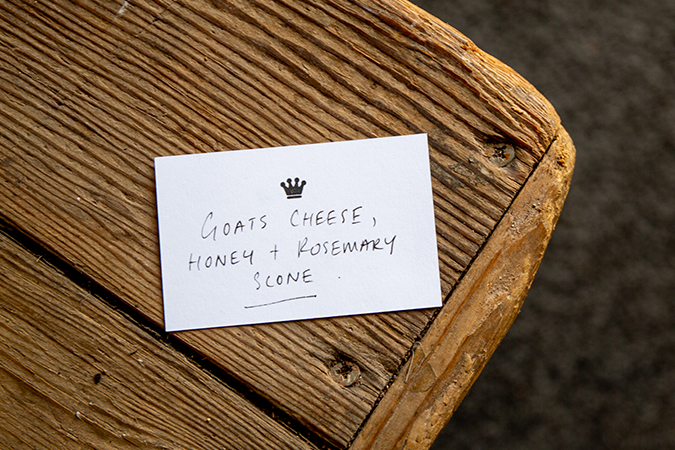 GOATS CHEESE,
HONEY + ROSEMARY
SCONE.